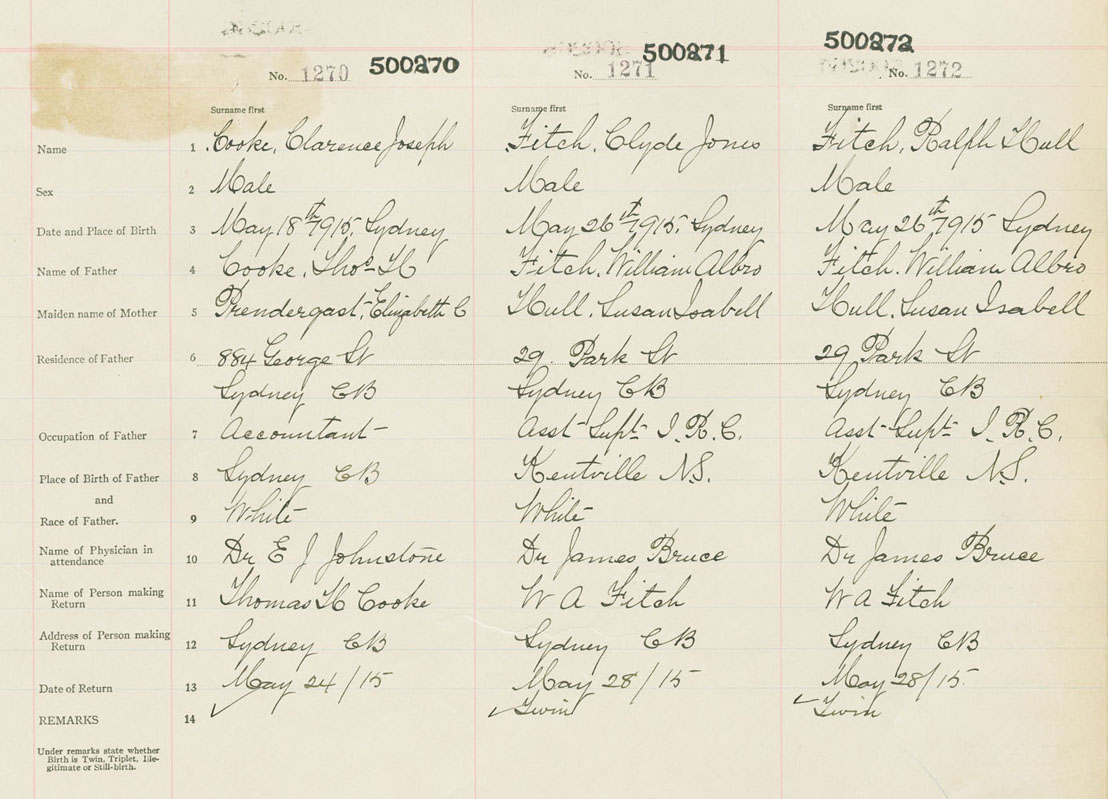 No. 1270 500270 No. 1271 500271 500272 No. 1272
Surname first Surname first Surname first
Name 1 Cooke, Clarence Joseph Fitch, Clyde Jones Fitch, Ralph Hull
Sex 2 Male Male Male
Date and Place of Birth 3 May 18th 1915, Sydney May 26th 1915, Sydney May 26th 1915 Sydney
Name of Father 4 Cooke, Thos H Fitch, William Albro Fitch, William Albro
Maiden name of Mother 5 Prendergast, Elizabeth C Hull, Susan Isabell Hull, Susan Isabell
Residence of Father 6 884 George St 29 Park St 29 Park St
Sydney CB Sydney CB Sydney CB
Occupation of Father 7 Accountant Asst Supt I.R.C. Asst Supt I.R.C.
Place of Birth of Father 8 Sydney CB Kentville N.S. Kentville N.S.
and
Race of Father. 9 White White White
Name of Physician in
attendance 10 Dr E J Johnstone Dr James Bruce Dr James Bruce
Name of Person making
Return 11 Thomas H Cooke W A Fitch W A Fitch
Address of Person making
Return 12 Sydney CB Sydney CB Sydney CB
Date of Return 13 May 24/15 May 28/15 May 28/15
REMARKS 14 Twin Twin
Under remarks state whether
Birth is Twin, Triplet, Ille-
gitimate or Still-birth.